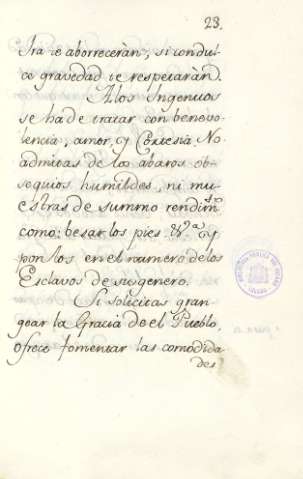 23.
Ira te aborreceràn; si con dul-
ce gravedad te respetaràn.
A los Ingenuos
se ha de tratar con benevo-
lencia, amor, y Cortesia. No
admitas de los abaros ob-
sequios humildes, ni mu-
estras de summo rendim.to
como: besar los pies. &.a y
ponlos en el numero de los
Esclavos de su genero.
Si solicitas gran-
gear la Gracia de el Pueblo,
ofrece fomentar las comodida-
des